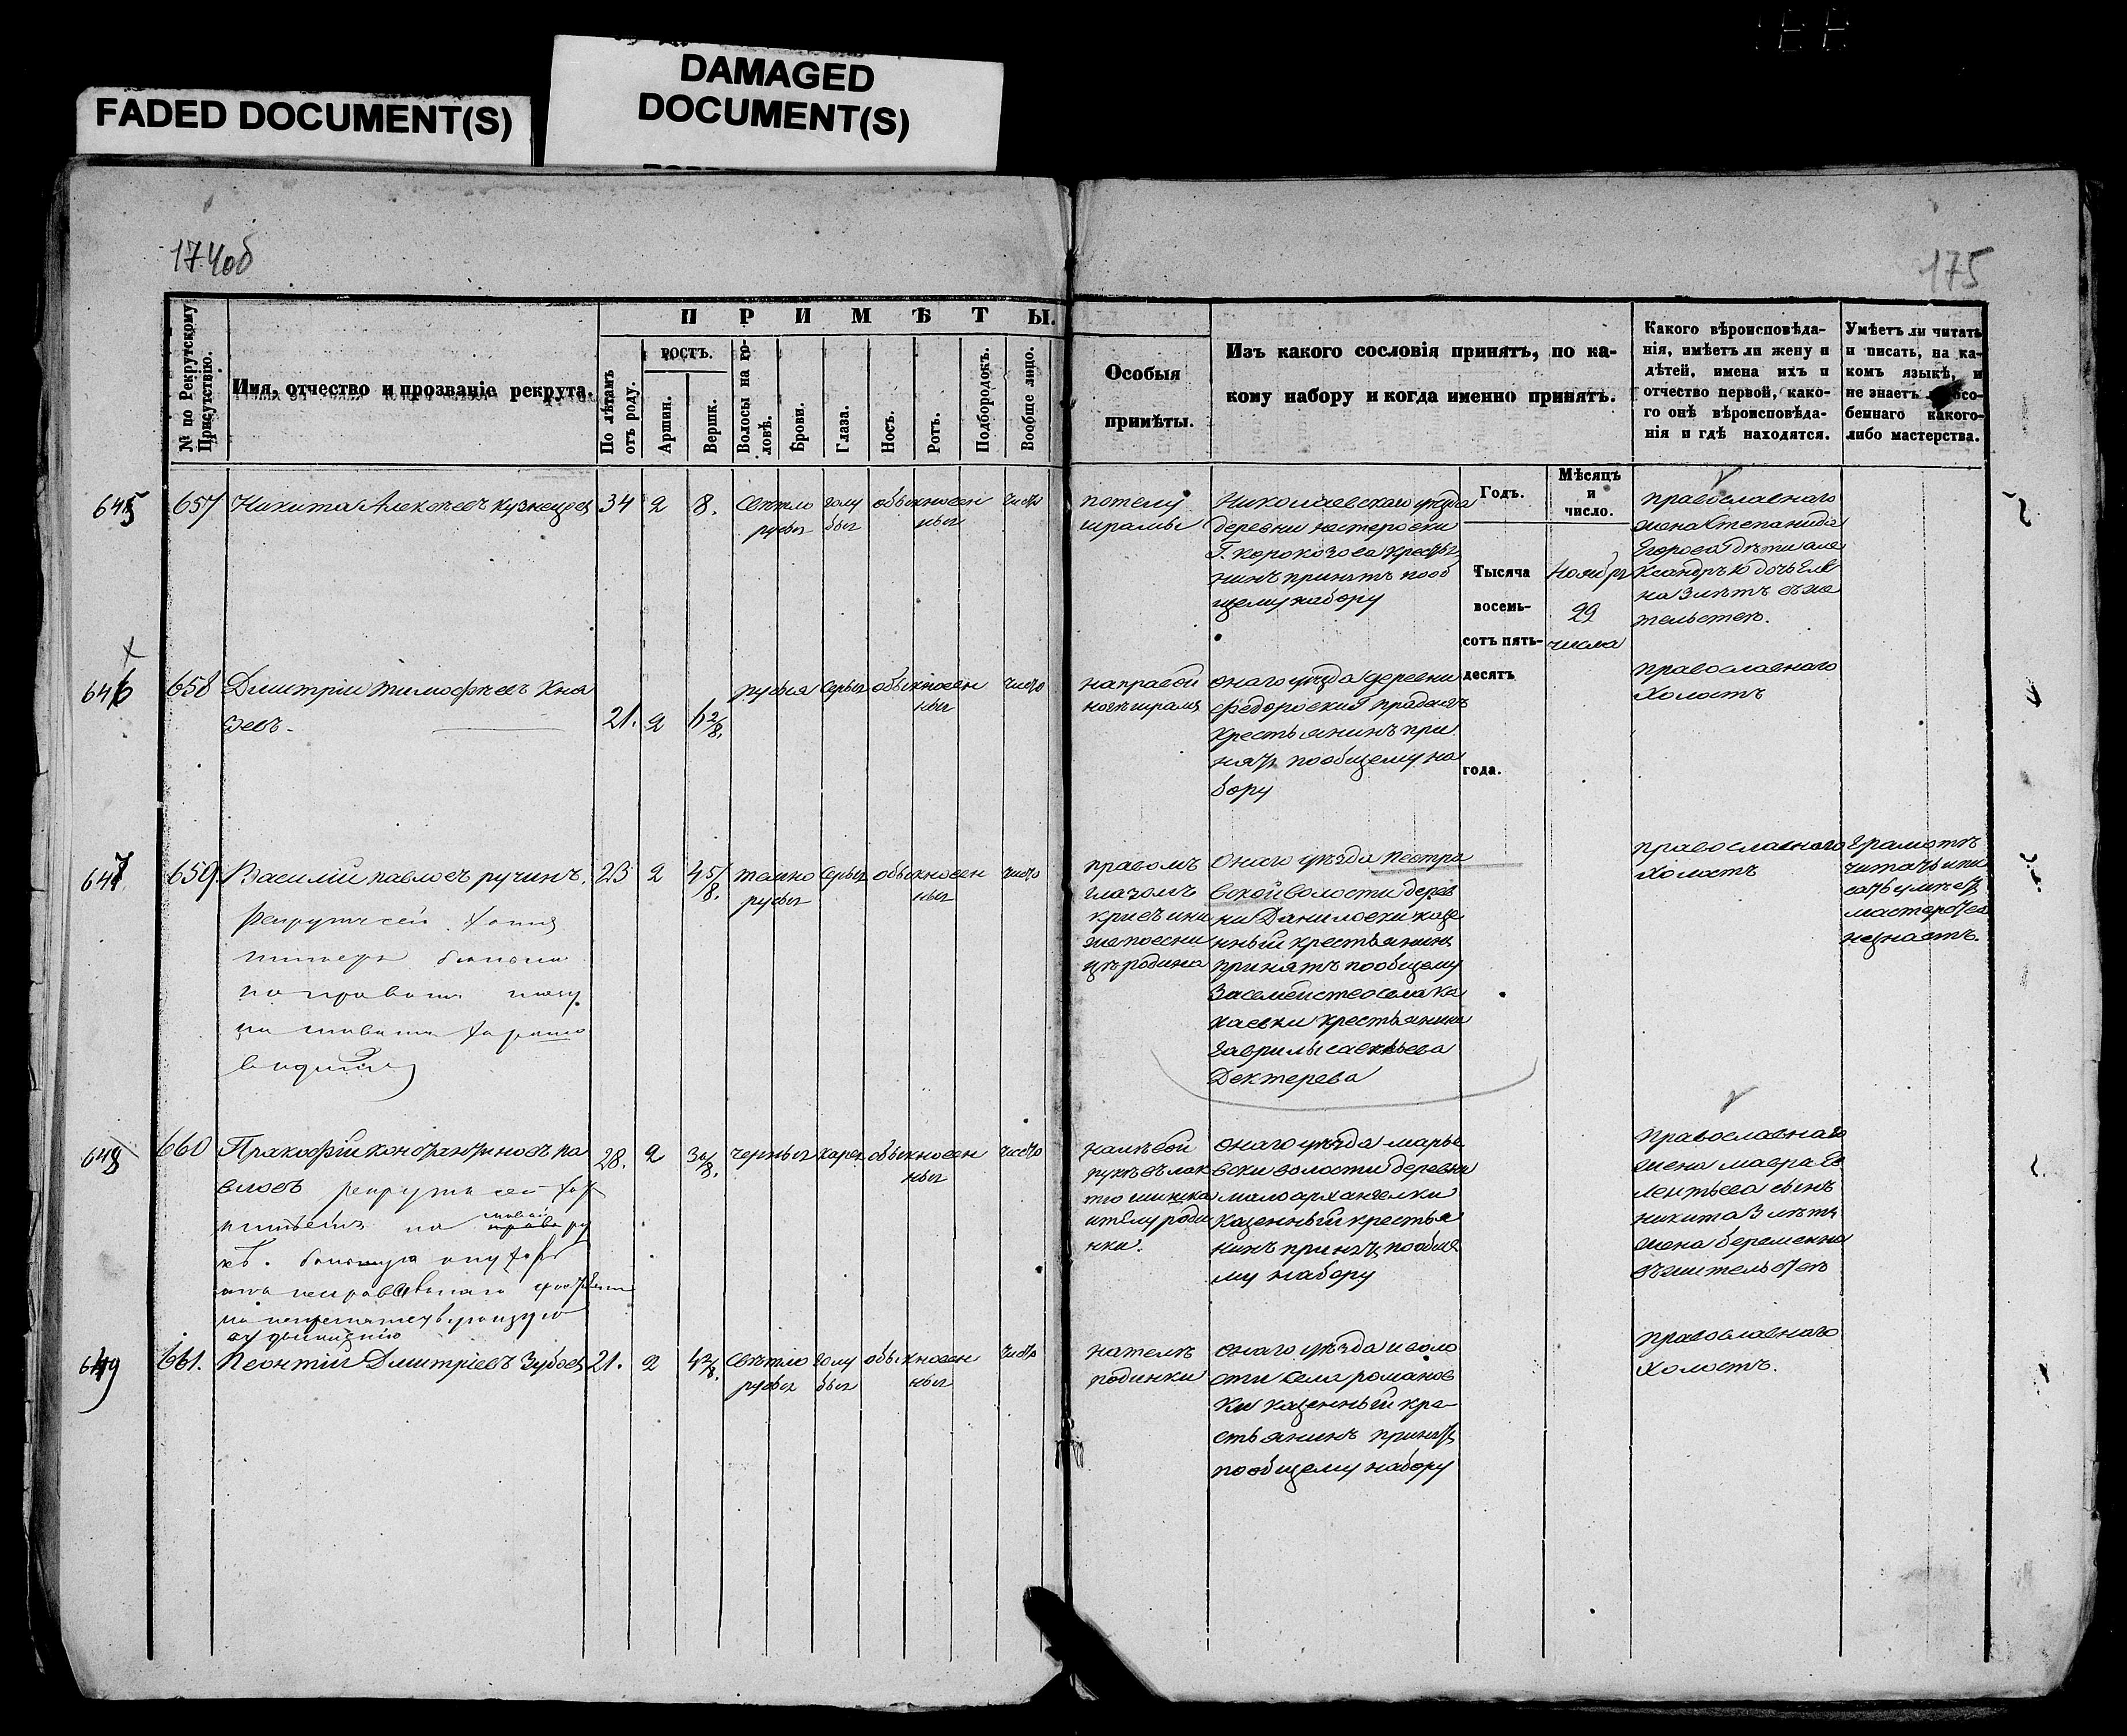 FADED DOCUMENT(S)
DAMAGED
DOCUMENT(S)
174об
175
№ по Рекрутскому
Присутствію.
Имя, отчество и прозваніе рекрута.
ПРИМѢТЫ.
По лѣтамъ
отъ роду.
РОСТЪ.
Аршин.
Вершк.
Волосы на го-
ловѣ.
Брови.
Глаза.
Носъ.
Ротъ.
Подбородокъ.
Вообще лицо.
Особыя
примѣты.
Изъ какого сословія принятъ, по ка-
кому набору и когда именно принятъ.
Какого вѣроисповѣда-
нія, имѣетъ ли жену и
дѣтей, имена ихъ и
отчество первой, како-
го онѣ вѣроисповѣда-
нія и гдѣ находятся.
Умѣетъ ли читать
и писать, на ка-
комъ языкѣ, и
не знаетъ осо-
беннаго какого-
либо мастерства.
Годъ.
Мѣсяцъ
и
число.
Тысяча
восемь-
сотъ пять-
десятъ
года.
Ноябрь
29
числа
645
657
Никита Алексѣевъ Кузнецовъ
34
2
8.
Свѣтло
русыя
голу
быя
обыкновен
ныя
чисто
потелу
шрамы
Николаевскаго уѣзда
деревни нестеровки
Г. Корокозова Кресть
нинъ принятъ пооб
щему набору
православнаго
жена Степанида
Егорова дѣти але
ксандръ 10 дочь Еле
на 3 лѣтъ
646
658
Дмитрій тимофѣевъ Кня
зевъ.
21.
2
6 2/8.
русыя
серыя
обыкновен
ныя
чисто
направой
ногѣ шрамъ
онаго уѣзда деревни
федоровки Г
Крестьянинъ при
нятъ пообщему на
бору
православнаго
Холостъ
647
659.
Василій павловъ ручинъ.
23
2
4 5/8.
темно
русыя
серыя
обыкновен
ныя
чисто
рекрутъ сей
видитъ
правомъ
глазомъ
кривъ ини
же поесни
цѣ родина
Онаго уѣзда пестра
вской волости дерев
ни Даниловки казе
нный крестьянинъ
принятъ пообщему
За семейство села Ка
хаевки Крестьянина
Гаврилы савельева
Дектерева
православнаго
Холостъ
Грамотѣ
читать ипи
сать умѣетъ
мастерства
незнаетъ.
648
660
Пракофій константиновъ па
вловъ рекрутъ сей
28.
2
3 /8.
черныя
карея
обыкновен
ныя
чисто
налѣвой
рукѣ влок
тю шишка
ителу роди
нки.
онаго уѣзда марье
вски волости деревни
малоархангелки
Казенный крестья
нинъ принятъ пообще
му набору
православнаго
жена мавра Ев
лентьева сынъ
никита 3 лѣтъ
жена беременна
вжительствѣ
649
661.
Леонтіи Дмитріевъ Зубовъ
21.
2
4 2/8.
Свѣтло
русыя
голу
быя
обыкновен
ныя
чисто
нателѣ
родинки
онаго уѣзда иволо
сти села романов
ки казенный кре-
стьянинъ принятъ
пообщему набору
православнаго
Холостъ.